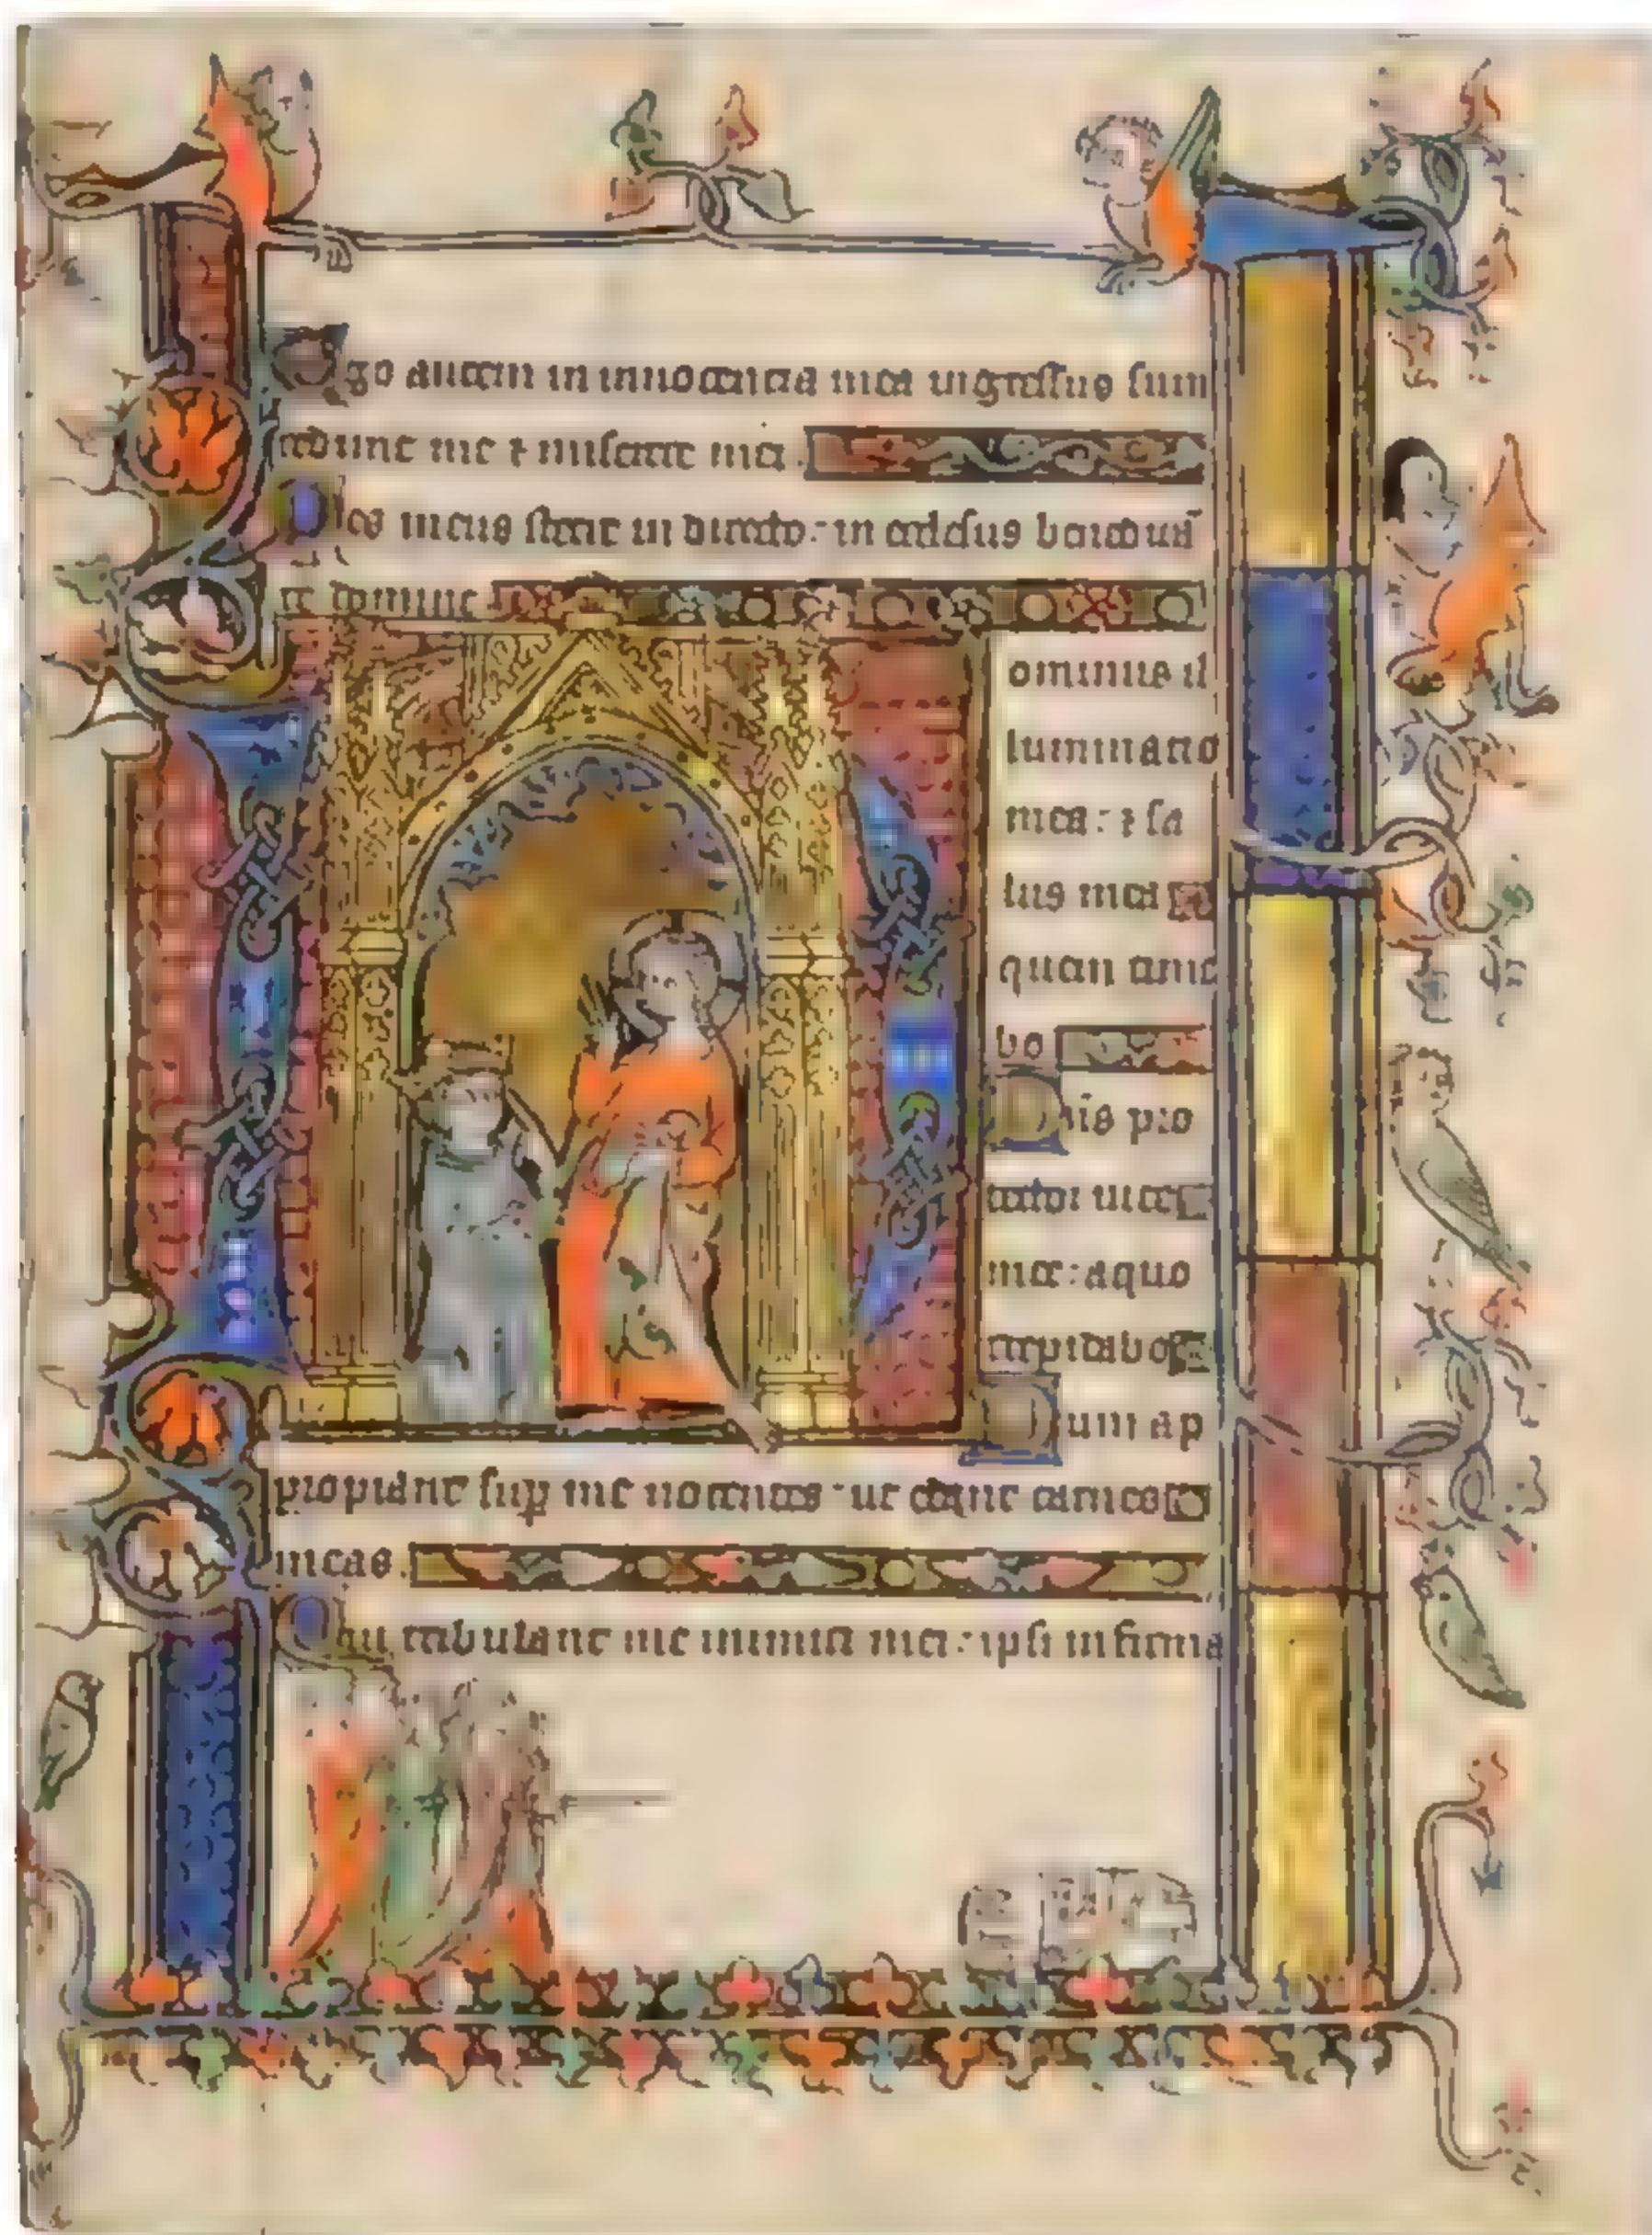 Ego autem in innocentia mea ingressus sum
redime me ⁊ miserere mei.
Pes meus stetit in directo: in ecclesiis benedicā
te domine
ominus il
luminatio
mea: ⁊ sa
lus mea
quem time
bo
Quis pro
tector uite
mee: a quo
trepidabo
Dum ap
propiant sup me nocentes: ut edant carnes
meas.
Qui tribulant me inimici mei: ipsi infirma